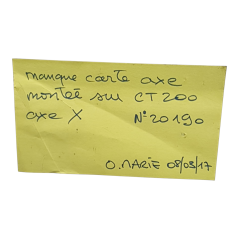 manque carte axe
montée sur CT200
axe X N°20190
O.MARIE 08/03/17